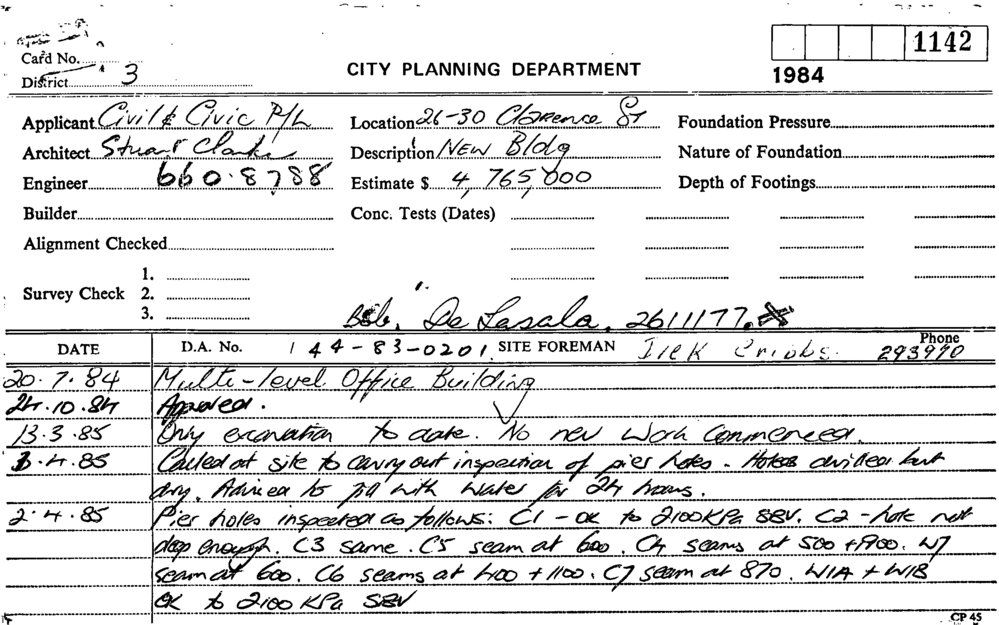 1142
Card No.
CITY PLANNING DEPARTMENT
1984
District 3
Applicant Civil & Civic P/L Location 26-30 Clarence St Foundation Pressure
Architect Stuart Description New Bldg Nature of Foundation
Engineer 660.8788 Estimate $ 4,765,000 Depth of Footings
Builder Conc. Tests (Dates)
Alignment Checked
1.
Survey Check 2.
3.
Bob De Lasala. 2611177.
DATE D.A. No. 144-83-0201 SITE FOREMAN Phone 293990
20.7.84 Multi-level Office Building
24.10.84 Approved.
13.3.85 Only excavation to date. No new work commenced.
1.4.85 Called at site to carry out inspection of pier holes - Holes drilled but
dry. Advised to fill with water for 24 hours.
2.4.85 Pier holes inspected as follows: C1 - OK to 2100KPa SBV. C2 - hole not
deep enough. C3 same. C5 seam at 600. C4 seams at 500 + 900. W7
seam at 600. C6 seams at 400 + 1100. C7 seam at 870. W1A + W1B
OK to 2100 KPa SBV
CP 45